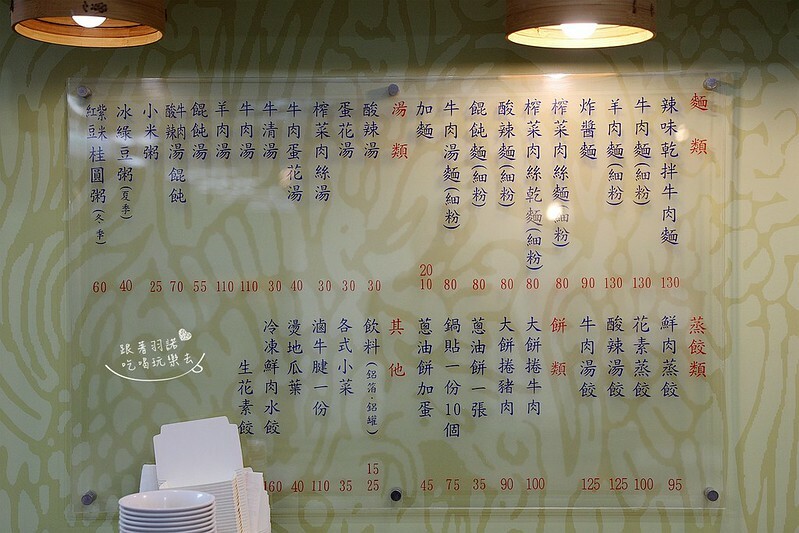 麵類
辣味乾拌牛肉麵 130
牛肉麵(細粉) 130
羊肉麵(細粉) 130
炸醬麵 90
榨菜肉絲麵(細粉) 80
榨菜肉絲乾麵(細粉) 80
酸辣麵(細粉) 80
餛飩麵(細粉) 80
牛肉湯麵(細粉) 80
加麵 20 10
湯類
酸辣湯 30
蛋花湯 30
榨菜肉絲湯 30
牛肉蛋花湯 40
牛清湯 30
牛肉湯 110
羊肉湯 110
餛飩湯 55
牛肉酸辣湯餛飩 70
小米粥 25
冰綠豆粥(夏季) 40
紫米紅豆桂圓粥(冬季) 60
蒸餃類
鮮肉蒸餃 95
花素蒸餃 100
酸辣湯餃 125
牛肉湯餃 125
餅類
大餅捲牛肉 100
大餅捲豬肉 90
蔥油餅一張 35
鍋貼一份10個 75
蔥油餅加蛋 45
其他
飲料(鋁箔·鋁罐) 15 25
各式小菜 35
滷牛腱一份 110
燙地瓜葉 40
冷凍鮮肉水餃 160
生花素餃
跟著羽諾
吃喝玩樂去